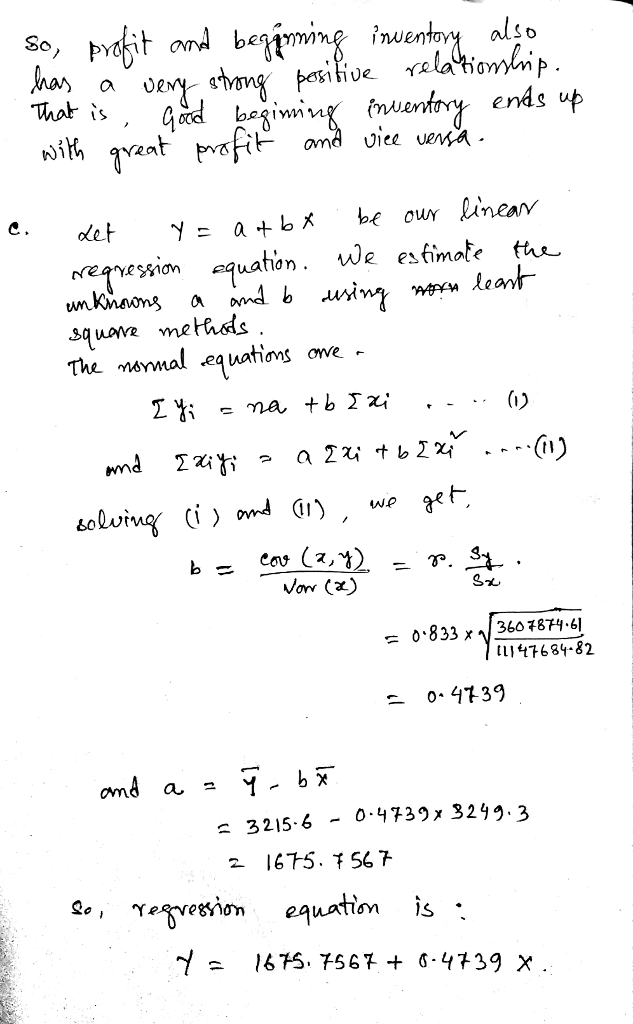 So, profit and beginning inventory also
has a very strong positive relationship.
That is, Good beginning inventory ends up
with great profit and vice versa.
c. Let Y = a + bX be our linear
regression equation. We estimate the
unknowns a and b using least
square methods.
The normal equations are -
Σyi = na + bΣxi ..... (i)
and Σxiyi = aΣxi + bΣxi² ..... (ii)
solving (i) and (ii), we get,
b = cov(x,y) / Var(x) = r. Sy / Sx.
= 0.833 x √(3607874.61 / 11147684.82)
= 0.4739
and a = ȳ - bx̄
= 3215.6 - 0.4739 x 3249.3
= 1675.7567
So, regression equation is :
Y = 1675.7567 + 0.4739 X.